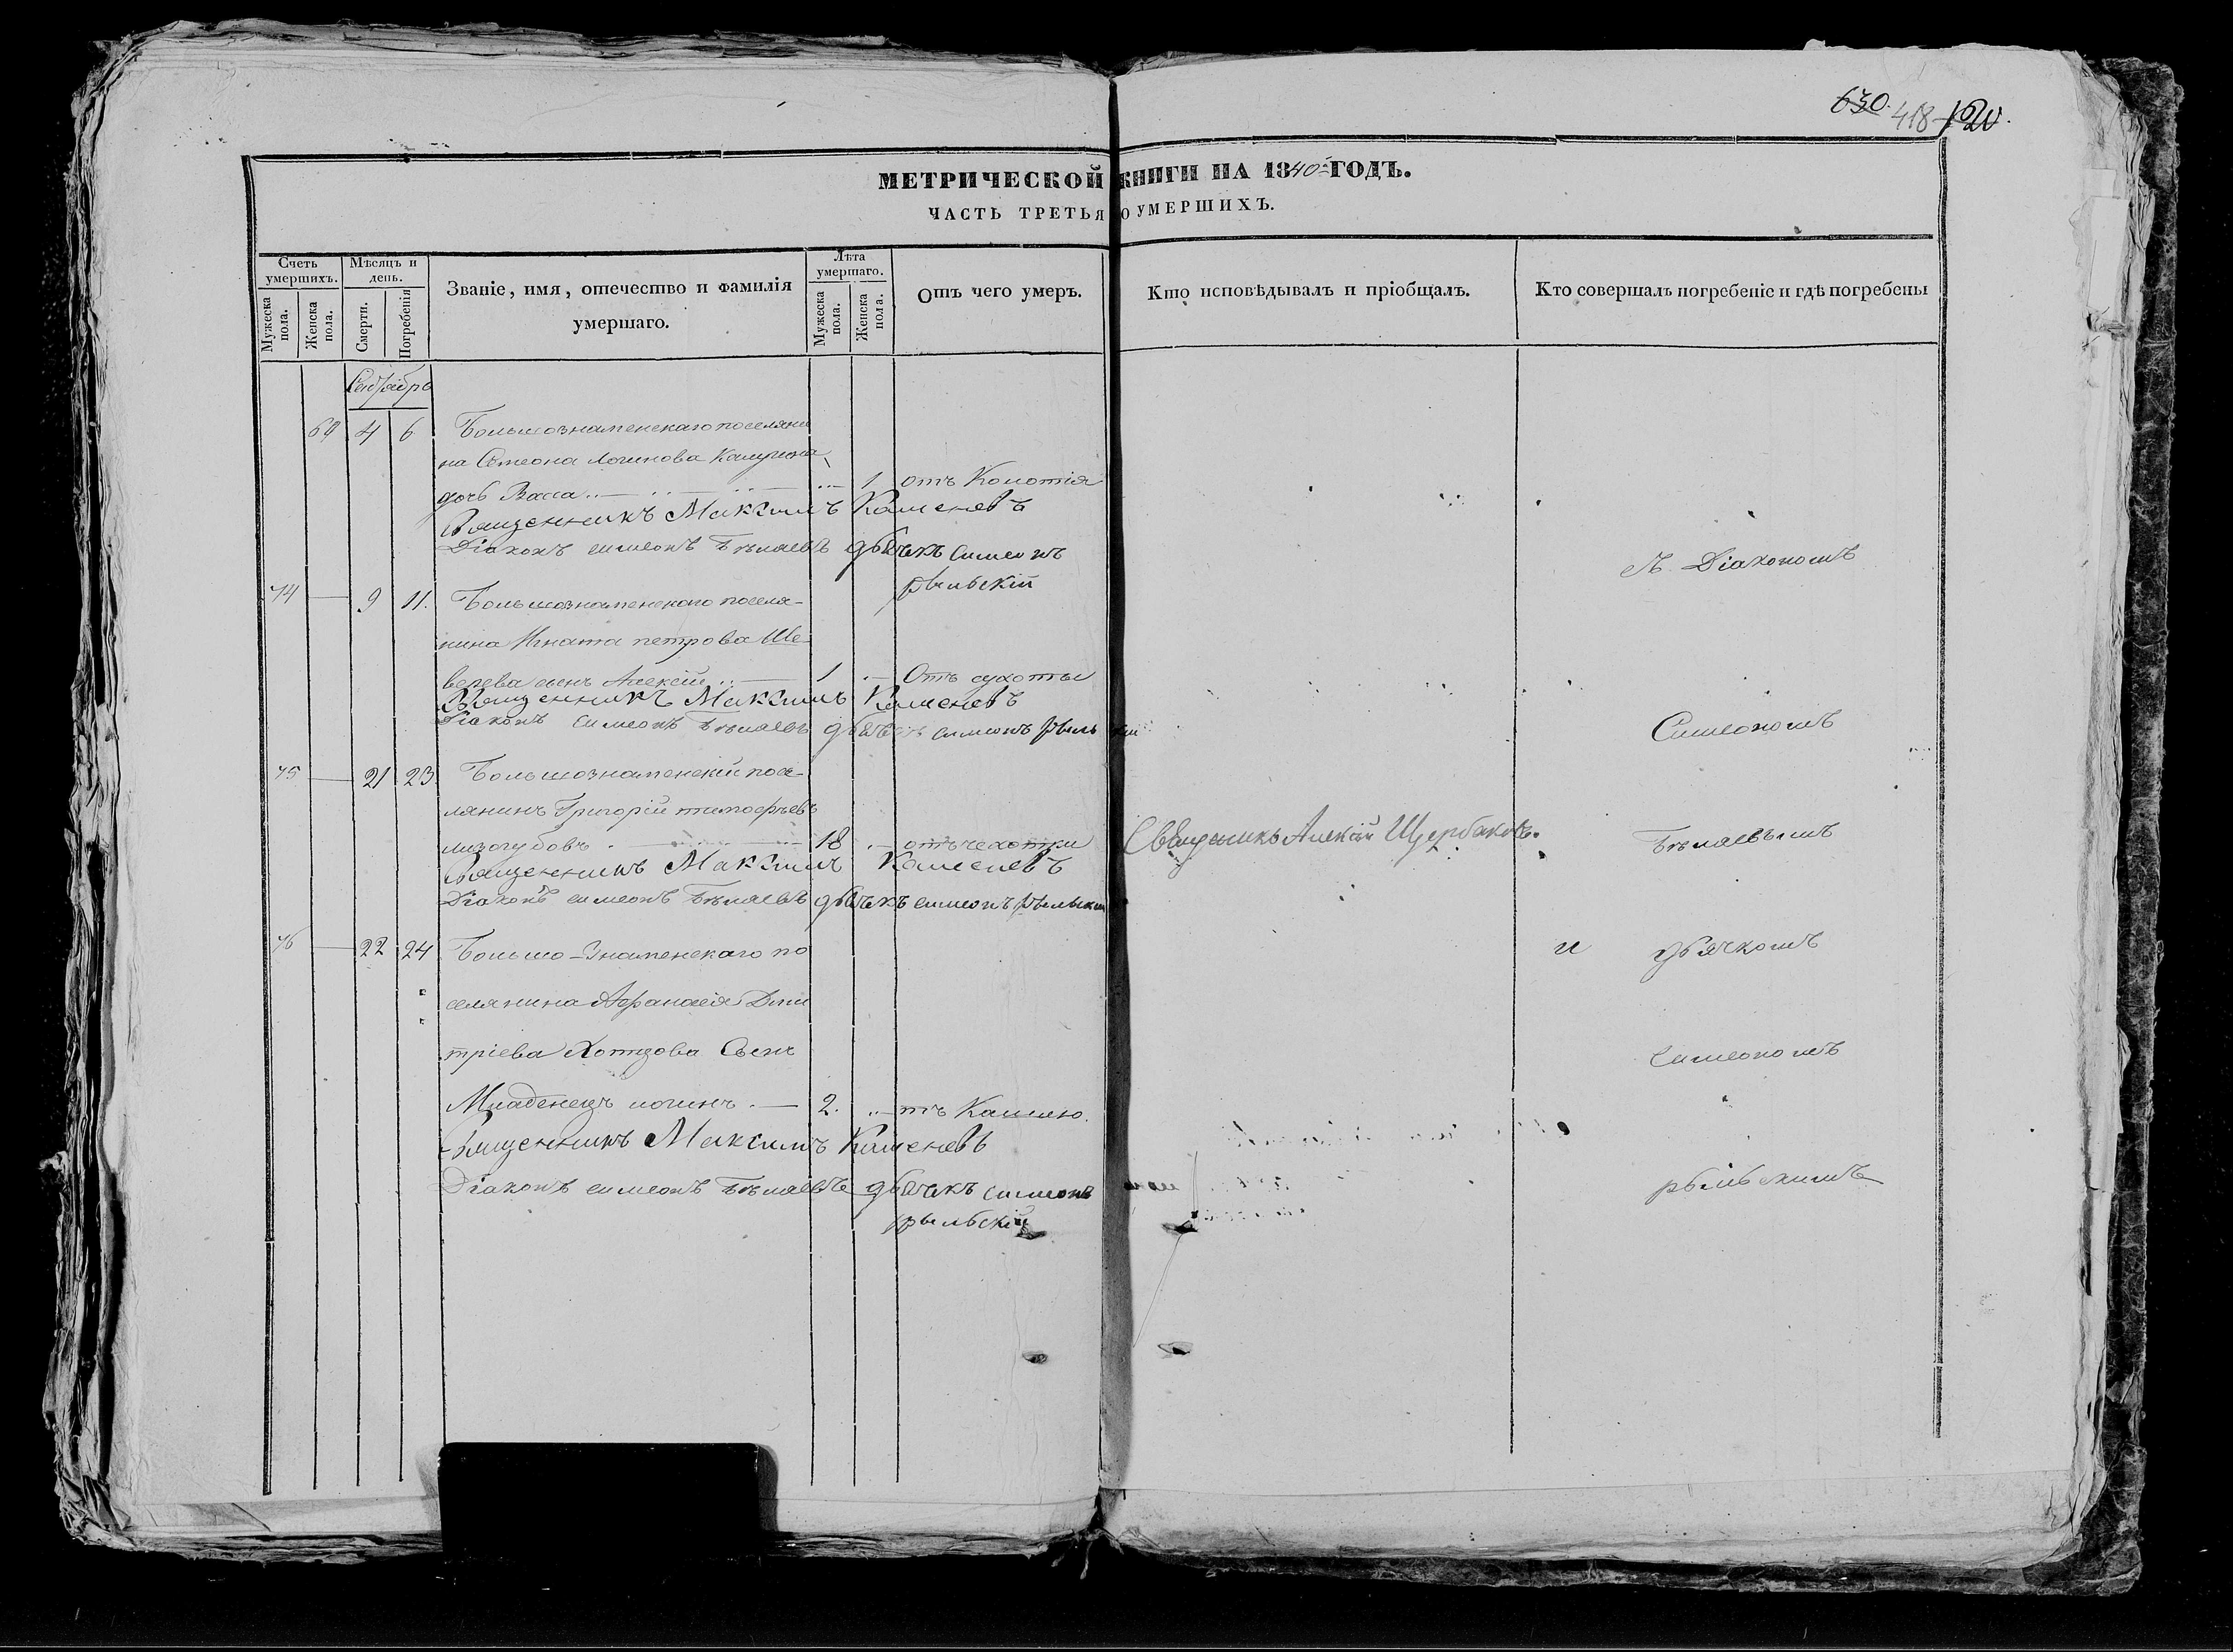 630. 418 120.
МЕТРИЧЕСКОЙ КНИГИ НА 1840 ГОДЪ.
ЧАСТЬ ТРЕТЬЯ О УМЕРШИХЪ.
Счетъ умершихъ.
Мужеска пола.
Женска пола.
Мѣсяцъ и день.
Смерти.
Погребенія
Званіе, имя, отечество и фамилія умершаго.
Лѣта умершаго.
Мужеска пола.
Женска пола.
Отъ чего умеръ.
Кто исповѣдывалъ и пріобщалъ.
Кто совершалъ погребеніе и гдѣ погребены
Сентябрь
69 4 6 Большознаменскаго поселяни
на Семеона Логинова Калугина
дочь Васса 1 отъ Колотія
Священникъ Максимъ Каменевъ
Діаконъ симеонъ Бѣлаевъ дьячекъ симеонъ
рыльскій
съ Діакономъ
74 9 11. Большознаменскаго поселя-
нина Игната петрова Ше-
велева сынъ Алексій 1 Отъ сухоты
Священникъ Максимъ Каменевъ
Діаконъ симеонъ Бѣлаевъ дьячекъ симеонъ рыльскій
Симеономъ
75 21 23 Большознаменскій посе-
лянинъ Григорій тимофѣевъ
лизогубовъ 18 отъ чехотки Священикъ Алексій Щербаковъ.
Бѣлаевымъ
Священникъ Максимъ Каменевъ
Діаконъ симеонъ Бѣлаевъ дьячекъ симеонъ рыльскій
76 22 24 Большо-Знаменскаго по
селянина Афанасія Дми
тріева Сынъ
Младенецъ логинъ 2. отъ Кашлю.
Священникъ Максимъ Каменевъ
Діаконъ симеонъ Бѣлаевъ дьячекъ симеонъ
рыльскій
и дьячкомъ
симеономъ
рыльскимъ